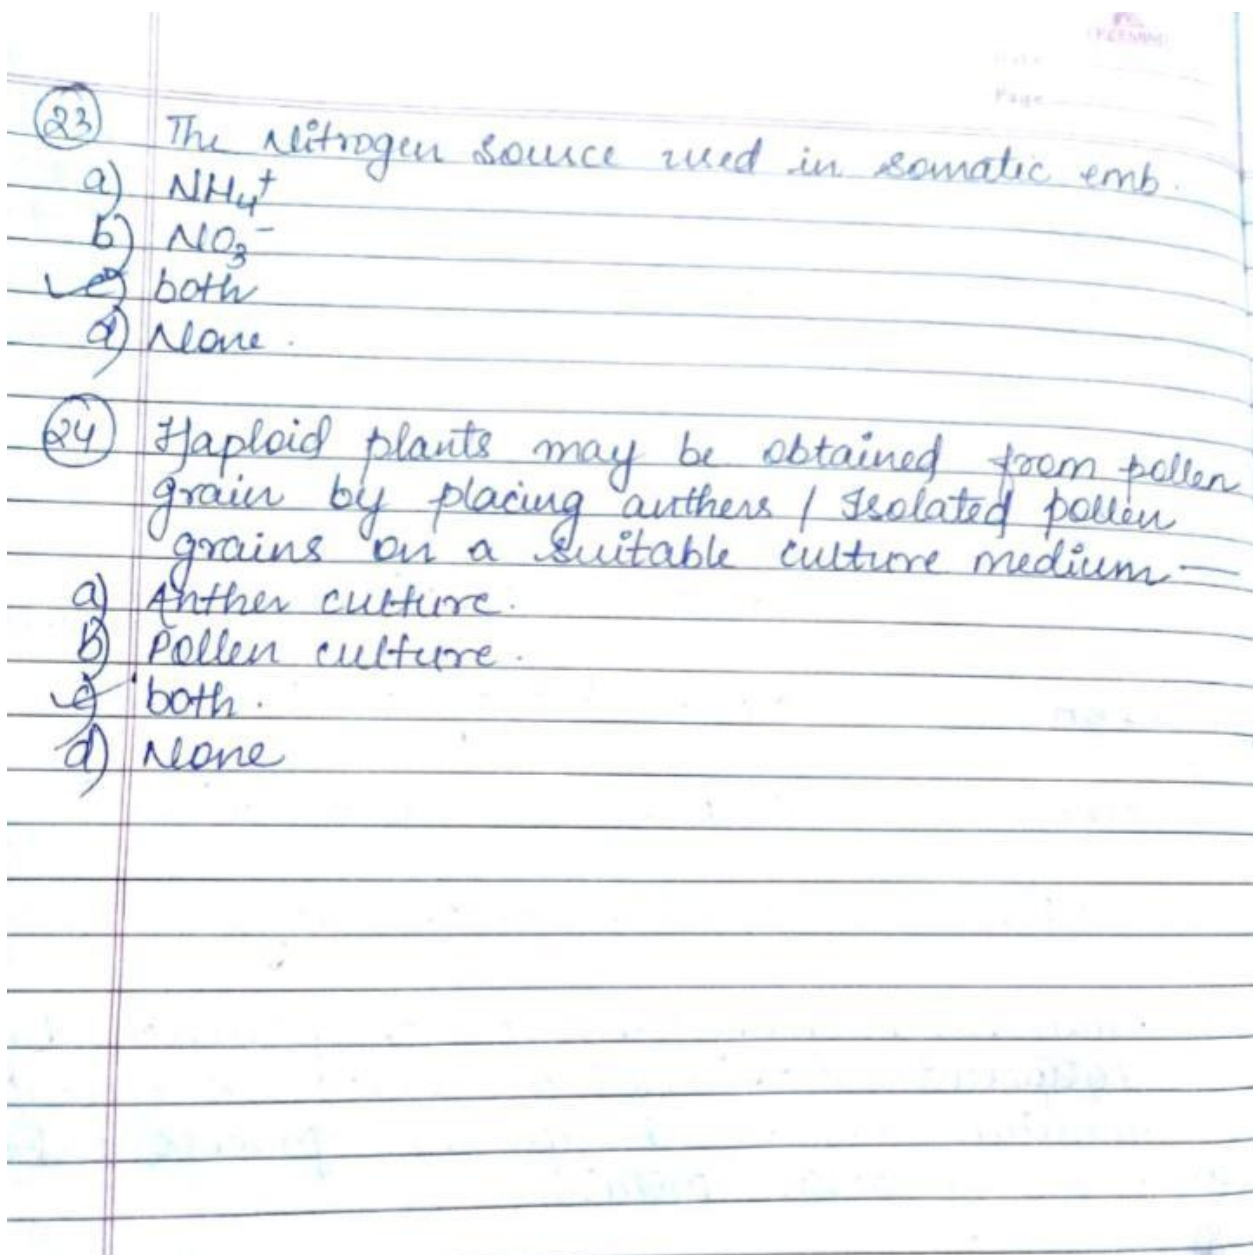 Page
23 The Nitrogen source used in somatic emb.
a) NH4+
b) NO3-
c) both
d) None.
24 Haploid plants may be obtained from pollen
grain by placing anthers / Isolated pollen
grains on a suitable culture medium —
a) Anther culture.
b) Pollen culture.
c) both.
d) None